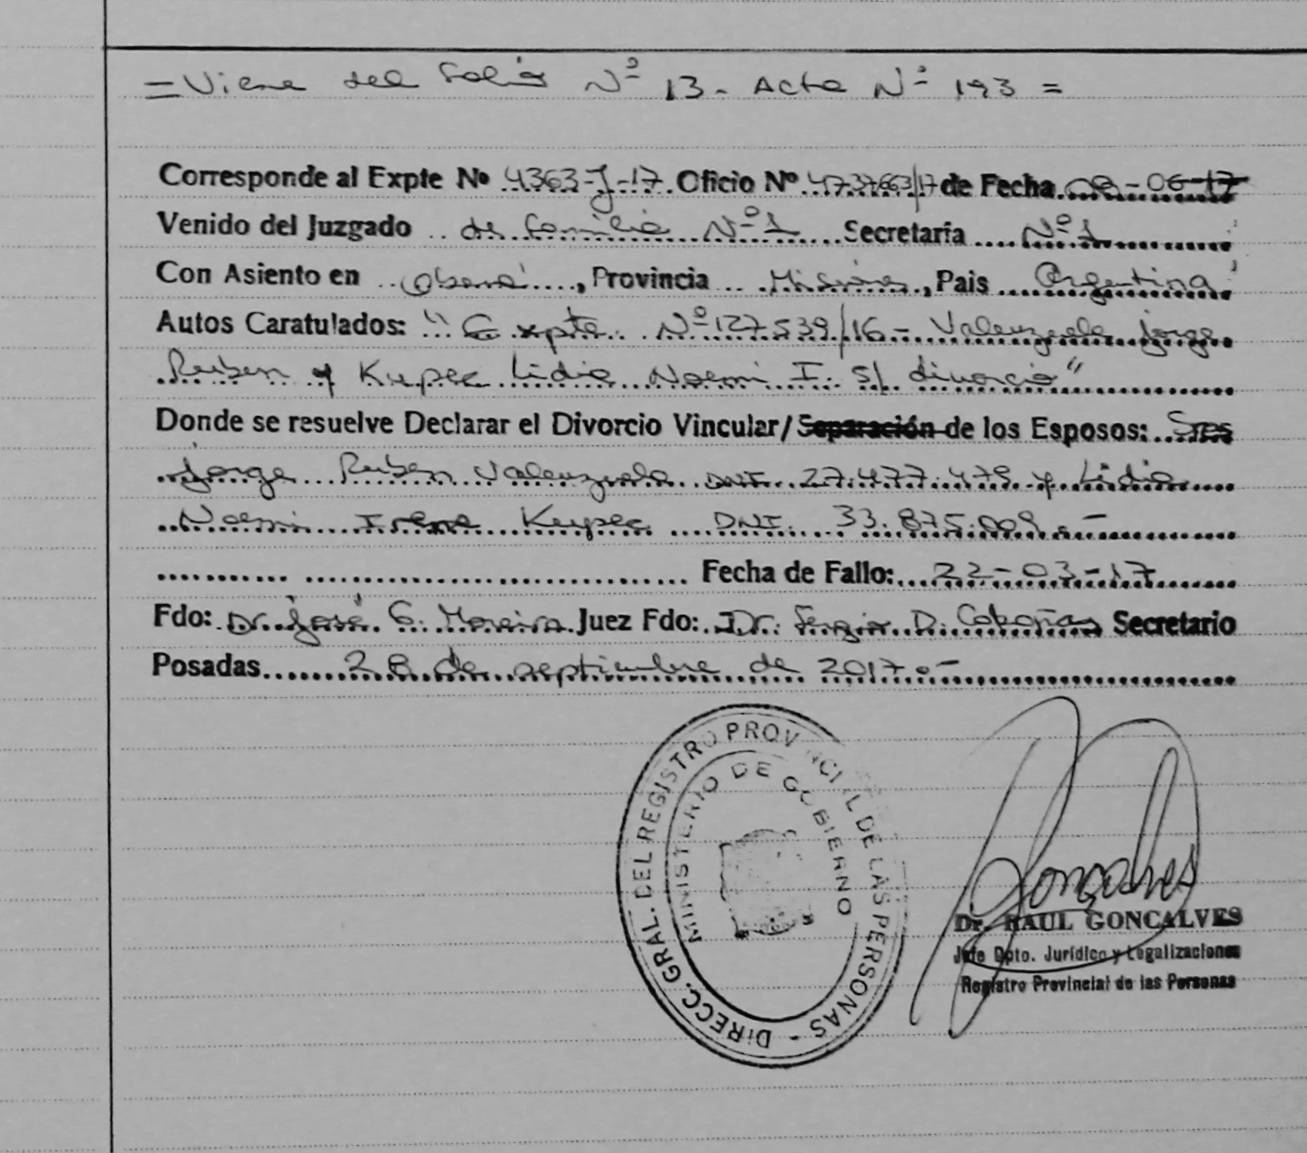 = Viene del Folio Nº 13 - Acta Nº 193 =
Corresponde al Expte Nº 4363-J-17 Oficio Nº 4733763/17 de Fecha 09-06-17
Venido del Juzgado de Familia Nº 1 Secretaría Nº 1
Con Asiento en Oberá, Provincia Misiones, Pais Argentina
Autos Caratulados: "Expte. Nº 127539/16 - Valenzuela Jorge
Ruben y Kupec Lidia Noemi I. S/ divorcio"
Donde se resuelve Declarar el Divorcio Vincular/Separación de los Esposos: Sres
Jorge Ruben Valenzuela DNI. 27.477.479 y Lidia
Noemi Irene Kupec DNI. 33.875.009.-
Fecha de Fallo: 22-03-17
Fdo: Dr. José G. Moreira Juez Fdo: Dr. Sergio D. Secretario
Posadas 28 de septiembre de 2017.-
DIRECC. GRAL. DEL REGISTRO PROVINCIAL DE LAS PERSONAS -
MINISTERIO DE GOBIERNO
Dr. RAUL GONCALVES
Jefe Dpto. Jurídico y Legalizaciones
Registro Provincial de las Personas